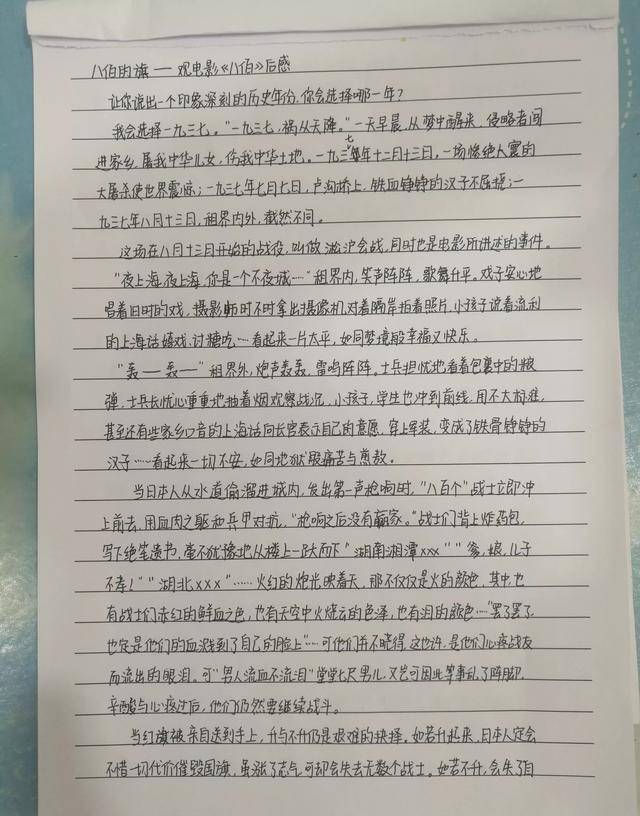 八佰的旗——观电影《八佰》后感
让你说出一个印象深刻的历史年份,你会选择哪一年?
我会选择一九三七。"一九三七,祸从天降。"一天早晨,从梦中醒来,侵略者闯
进家乡,屠我中华儿女,伤我中华土地。一九三七年十二月十三日,一场惨绝人寰的
大屠杀使世界震惊;一九三七年七月七日,卢沟桥上,铁血铮铮的汉子不屈挠;一
九三七年八月十三日,租界内外,截然不同。
这场在八月十三日开始的战役,叫做淞沪会战,同时也是电影所讲述的事件。
"夜上海,夜上海,你是一个不夜城……"租界内,笑声阵阵,歌舞升平。戏子安心地
唱着旧时的戏,摄影师时不时拿出摄像机,对着隔岸拍着照片,小孩子说着流利
的上海话嬉戏,讨糖吃……看起来一片太平,如同梦境般幸福又快乐。
"轰——轰——"租界外,炮声轰轰,雷鸣阵阵。士兵担忧地看着包裹中的粮
弹,士兵长忧心重重地抽着烟观察战况,小孩子,学生也冲到前线,用不大标准,
甚至还有些家乡口音的上海话向长官表示自己的意愿,穿上军装,变成了铁骨铮铮的
汉子……看起来一切不安,如同地狱般痛苦与煎熬。
当日本人从水道偷溜进城内,发出第一声枪响时,"八百个"战士立即冲
上前去,用血肉之躯和兵甲对抗,"枪响之后没有赢家。"战士们背上炸药包,
写下绝笔遗书,毫不犹豫地从楼上一跃而下"湖南湘潭xxx""爹,娘,儿子
不孝!""湖北xxx"……火红的炮光映着天,那不仅仅是火的颜色,其中,也
有战士们赤红的鲜血之色,也有天空中火烧云的色泽,也有泪的颜色……"罢了罢了
也定是他们的血溅到了自己的脸上"……可他们并不晓得,这也许,是他们心疼战友
而流出的眼泪。可"男人流血不流泪"堂堂七尺男儿,又岂可因此等事乱了阵脚,
辛酸与心疼过后,他们仍然要继续战斗。
当红旗被亲自送到手上,升与不升仍是艰难的抉择。如若升起来,日本人定会
不惜一切代价摧毁国旗,虽涨了志气,可却会失去无数个战士。如若不升,会失了自